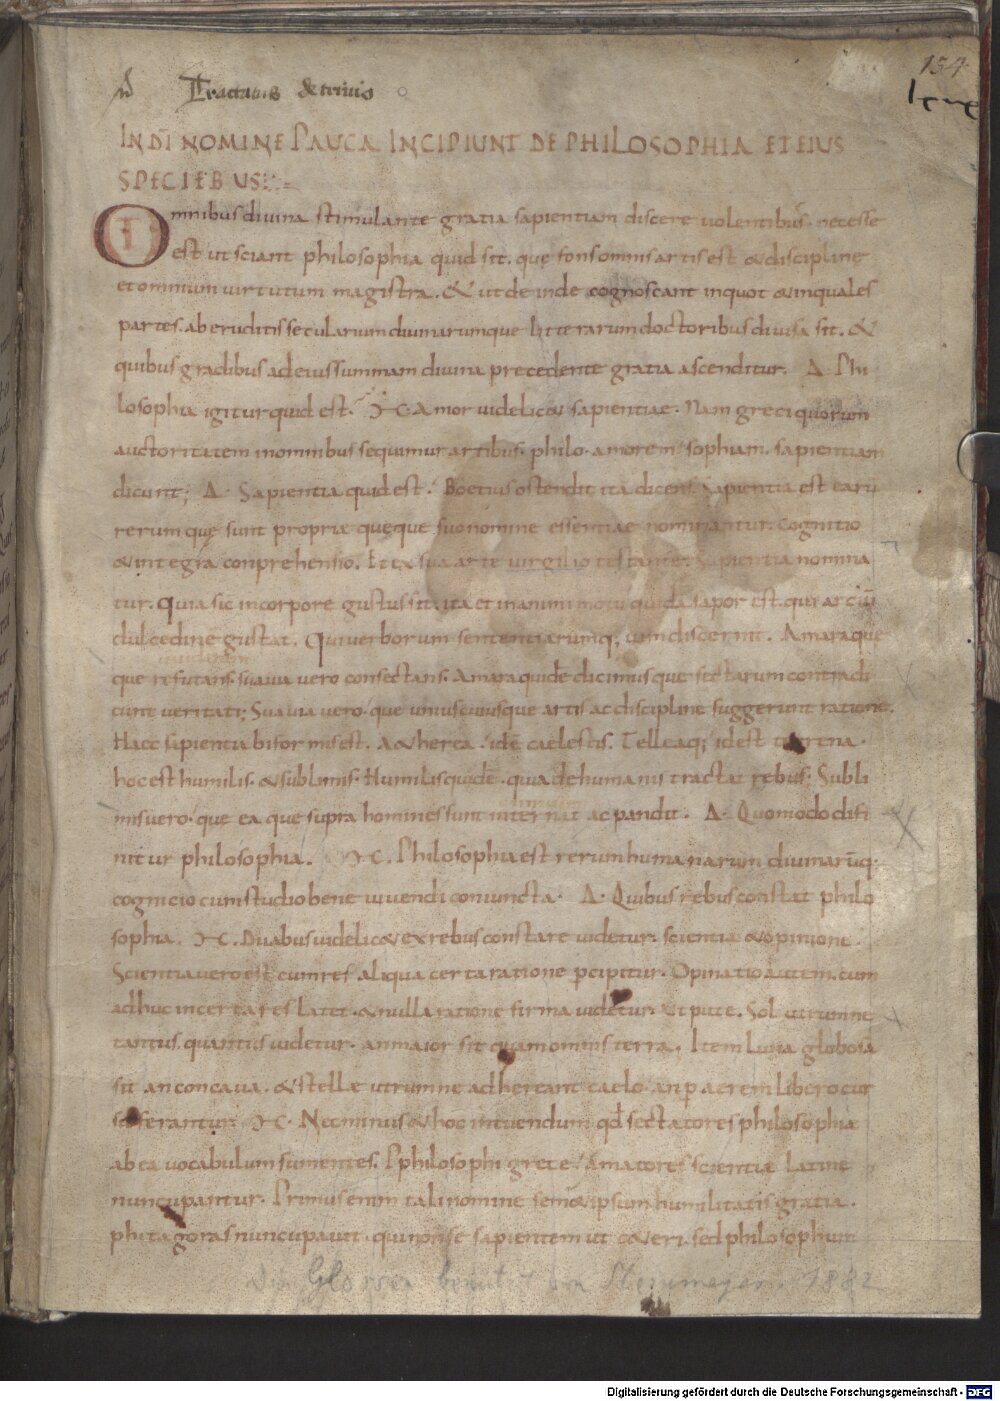 154
Tractatus de trivio
IN DI NOMINE PAUCA INCIPIUNT DE PHILOSOPHIA ET EIUS
SPECIEBUS
Omnibus divina stimulante gratia sapientiam discere volentibus. necesse
est ut sciant philosophia quid sit. quę fons omnis artis est & disciplinę
et omnium virtutum magistra. & ut deinde cognoscant in quot & in quales
partes. ab eruditis secularium divinarumque litterarum doctoribus divisa sit. &
quibus gradibus ad eius summam divina precedente gratia ascenditur. Δ. Phi
losophia igitur quid est. Amor videlic& sapientiae. Nam greci quorum
auctoritatem in omnibus sequimur artibus. philo. amorem sophiam. sapientiam
dicunt; Δ. Sapientia quid est. Boetius ostendit ita dicens. Sapientia est earū
rerum quę sunt propriæ quęque suo nomine essentiae nominantur. cognitio
& integra conprehensio. Et ex sua arte virgilio testante. Sapientia nomina
tur. Quia sic in corpore gustus sit. ita et in animi motu quidā sapor est. qui artiū
dulcedinē gustat. Qui verborum sententiarumq; vim discernit. Amara que
que refutans. suavia vero consectans. Amara quidē dicimus que sectarum contradi
cunt veritati; Suavia vero. que uniuscuiusque artis ac discipline suggerunt ratione.
Haec sapientia biformis est. A&herea. idē caelestis. Telleaq; idest terrena.
hoc est humilis. & sublimis. Humilis quidē. quia de humanis tractat rebus. Subli
mis vero. que ea que supra homines sunt internat ac pandit. Δ. Quomodo difi
nitur philosophia. Philosophia est rerum humanarum divinarūq.
cognicio cum studio bene vivendi coniuncta. Δ. Quibus rebus constat philo
sophia. Duabus videlic& ex rebus constare videtur. scientia & opinione.
Scientia vero est cum res aliqua certa ratione p̄cipitur. Opinatio autem. cum
adhuc incerta res latet. & nulla ratione firma videtur. Ut pute. Sol utrumne
tantus. quantus videtur. an maior sit quam omnis terra. Item luna globosa
sit an concava. & stellæ utrumne adhereant caelo. an p aerem libero cur
su ferantur. Nec minus & hoc intuendum qđ sectatores philosophiæ
ab ea vocabulum sumentes. Philosophi grece. Amatores scientiæ Latine
nuncupantur. Primus enim tali nomine sem&ipsum humilitatis gratia.
phitagoras nuncupavit. qui non se sapientem ut c&eri. sed philosophum
Die Glossen benutzt von Steinmeyer. 1882
Digitalisierung gefördert durch die Deutsche Forschungsgemeinschaft - DFG